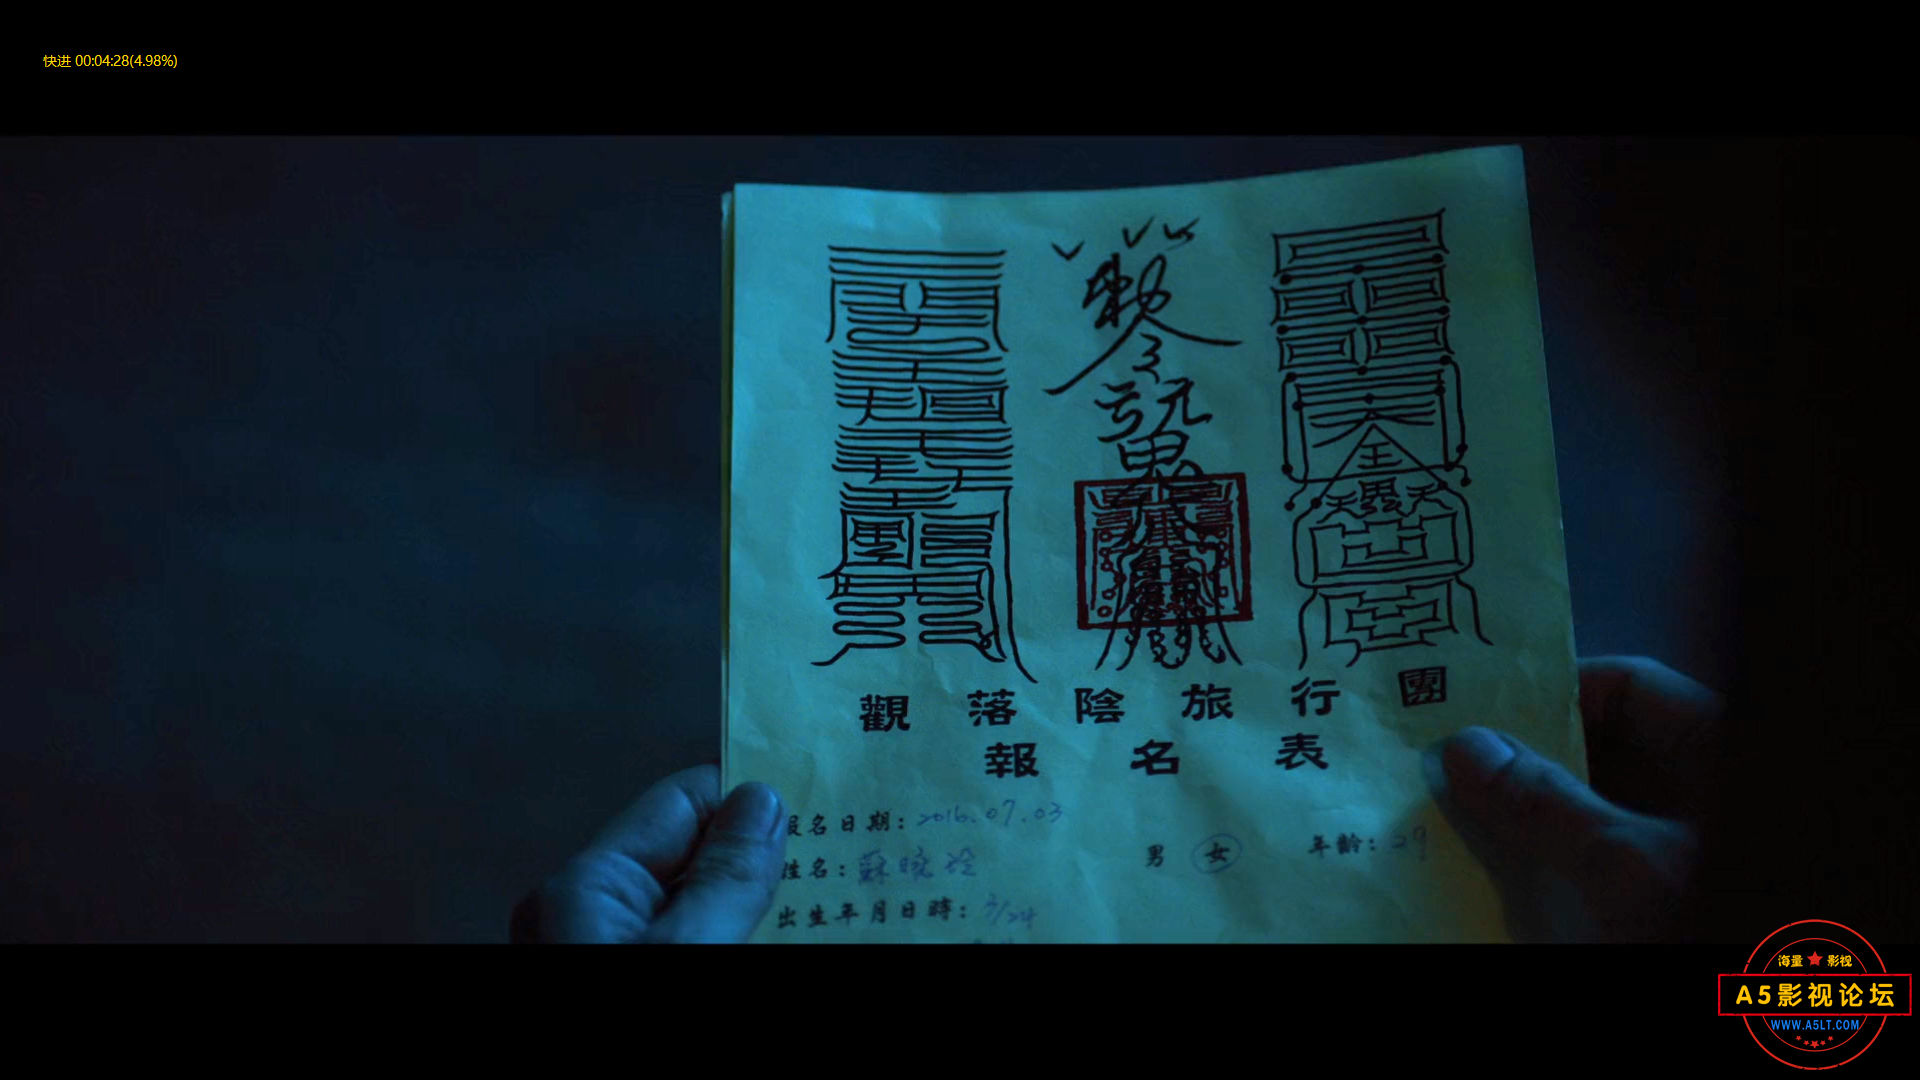 快进 00:04:28(4.98%)
勅令
觀落陰旅行團
報名表
報名日期：2016.07.03
姓名：蘇曉玲 男 女 年齡：29
出生年月日時：3/24
海量★影视
A5影视论坛
WWW.A5LT.COM